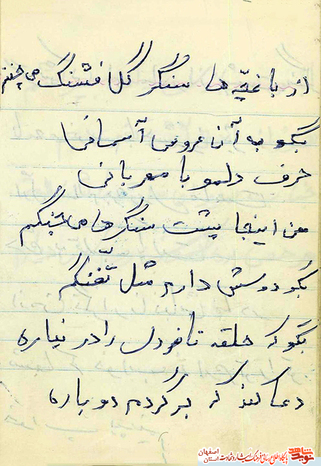 از باغچه ها سنگر گل قشنگ می چینم
بگو به آن عروس آسمانی
حرف دلمو با مهربانی
من اینجا پشت سنگرها می جنگم
بگو دوسش دارم مثل تفنگم
بگو که حلقه نامزدی را در نیاره
دعا کند که برگردم دوباره
نوید شاهد
اصفهان